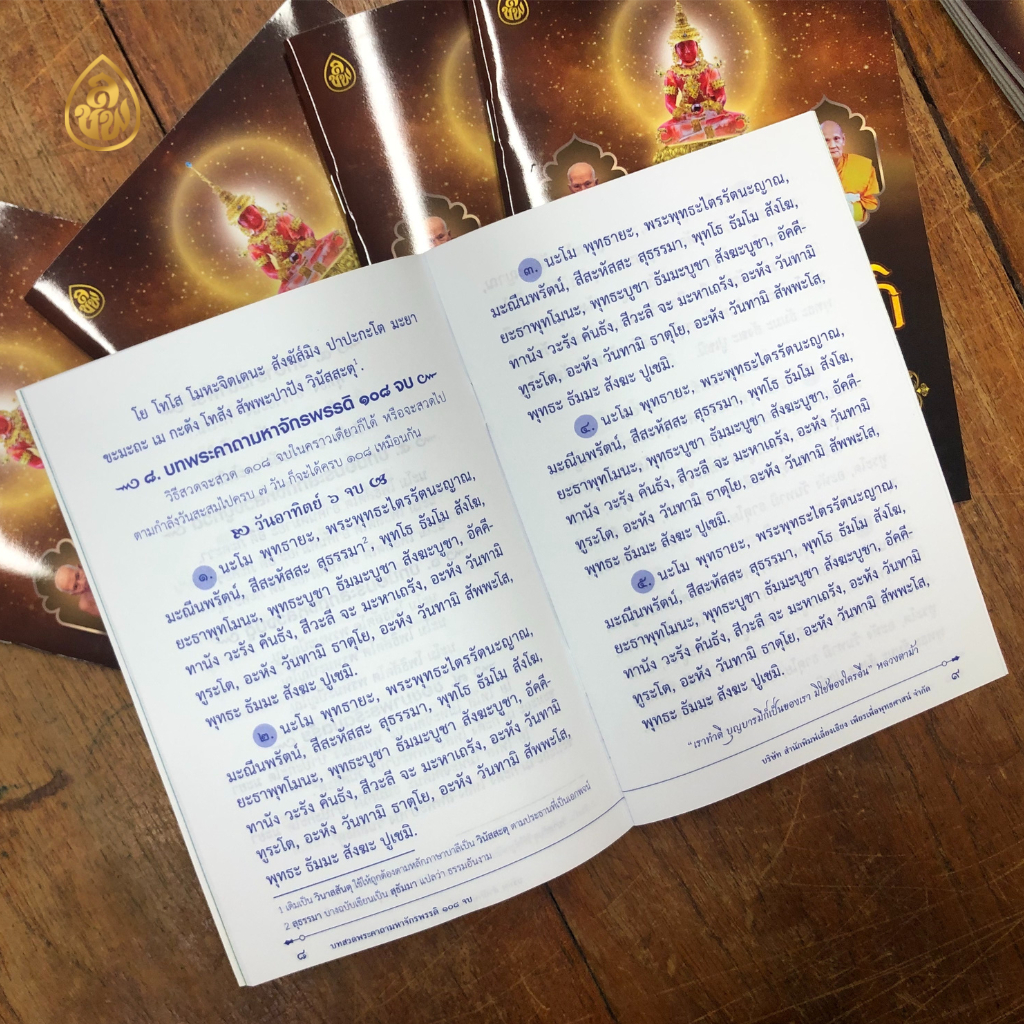 โย โทโส โมหะจิตเตนะ สังฆัสมิง ปาปะกะโต มะยา
ขะมะถะ เม กะตัง โทสัง สัพพะปาปัง วินัสสะตุ¹.
๘. บทพระคาถามหาจักรพรรดิ ๑๐๘ จบ
วิธีสวดจะสวด ๑๐๘ จบในคราวเดียวก็ได้ หรือจะสวดไป
ตามกำลังวันสะสมไปครบ ๗ วัน ก็จะได้ครบ ๑๐๘ เหมือนกัน
วันอาทิตย์ ๖ จบ
๑. นะโม พุทธายะ, พระพุทธะไตรรัตนะญาณ,
มะณีนพรัตน์, สีสะหัสสะ สุธรรมา², พุทโธ ธัมโม สังโฆ,
ยะธาพุทโมนะ, พุทธะบูชา ธัมมะบูชา สังฆะบูชา, อัคคี-
ทานัง วะรัง คันธัง, สีวะลี จะ มะหาเถรัง, อะหัง วันทามิ
ทูระโต, อะหัง วันทามิ ธาตุโย, อะหัง วันทามิ สัพพะโส,
พุทธะ ธัมมะ สังฆะ ปูเชมิ.
๒. นะโม พุทธายะ, พระพุทธะไตรรัตนะญาณ,
มะณีนพรัตน์, สีสะหัสสะ สุธรรมา, พุทโธ ธัมโม สังโฆ,
ยะธาพุทโมนะ, พุทธะบูชา ธัมมะบูชา สังฆะบูชา, อัคคี-
ทานัง วะรัง คันธัง, สีวะลี จะ มะหาเถรัง, อะหัง วันทามิ
ทูระโต, อะหัง วันทามิ ธาตุโย, อะหัง วันทามิ สัพพะโส,
พุทธะ ธัมมะ สังฆะ ปูเชมิ.
1 เดิมเป็น วินาสสันตุ ใช้ให้ถูกต้องตามหลักภาษาบาลีเป็น วินัสสะตุ ตามประธานที่เป็นเอกพจน์
2 สุธรรมา บางฉบับเขียนเป็น สุธัมมา แปลว่า ธรรมอันงาม
๘ บทสวดพระคาถามหาจักรพรรดิ ๑๐๘ จบ
๓. นะโม พุทธายะ, พระพุทธะไตรรัตนะญาณ,
มะณีนพรัตน์, สีสะหัสสะ สุธรรมา, พุทโธ ธัมโม สังโฆ,
ยะธาพุทโมนะ, พุทธะบูชา ธัมมะบูชา สังฆะบูชา, อัคคี-
ทานัง วะรัง คันธัง, สีวะลี จะ มะหาเถรัง, อะหัง วันทามิ
ทูระโต, อะหัง วันทามิ ธาตุโย, อะหัง วันทามิ สัพพะโส,
พุทธะ ธัมมะ สังฆะ ปูเชมิ.
๔. นะโม พุทธายะ, พระพุทธะไตรรัตนะญาณ,
มะณีนพรัตน์, สีสะหัสสะ สุธรรมา, พุทโธ ธัมโม สังโฆ,
ยะธาพุทโมนะ, พุทธะบูชา ธัมมะบูชา สังฆะบูชา, อัคคี-
ทานัง วะรัง คันธัง, สีวะลี จะ มะหาเถรัง, อะหัง วันทามิ
ทูระโต, อะหัง วันทามิ ธาตุโย, อะหัง วันทามิ สัพพะโส,
พุทธะ ธัมมะ สังฆะ ปูเชมิ.
๕. นะโม พุทธายะ, พระพุทธะไตรรัตนะญาณ,
มะณีนพรัตน์, สีสะหัสสะ สุธรรมา, พุทโธ ธัมโม สังโฆ,
ยะธาพุทโมนะ, พุทธะบูชา ธัมมะบูชา สังฆะบูชา, อัคคี-
ทานัง วะรัง คันธัง, สีวะลี จะ มะหาเถรัง, อะหัง วันทามิ
ทูระโต, อะหัง วันทามิ ธาตุโย, อะหัง วันทามิ สัพพะโส,
พุทธะ ธัมมะ สังฆะ ปูเชมิ.
"เราทำดี บุญบารมีก็เป็นของเรา มิใช่ของใครอื่น" หลวงตาม้า
บริษัท สำนักพิมพ์เลี่ยงเชียง เพียรเพื่อพุทธศาสน์ จำกัด ๙